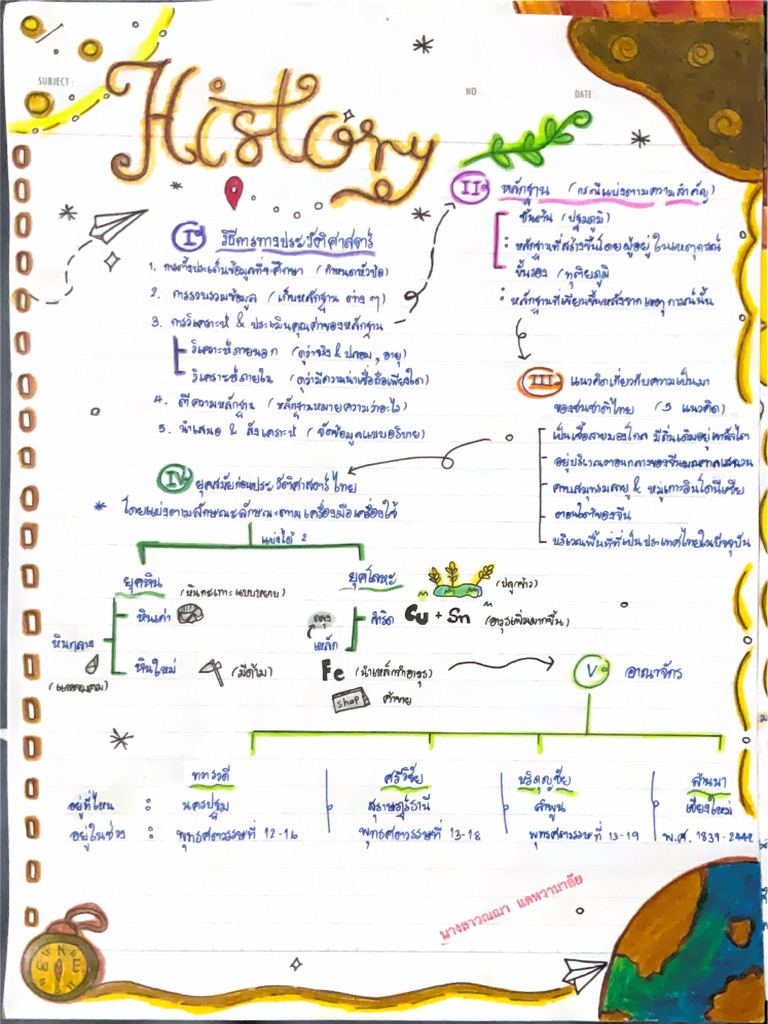 SUBJECT :
NO :
DATE :
History
I วิธีการทางประวัติศาสตร์
1. การตั้งประเด็นข้อมูลที่จะศึกษา (กำหนดหัวข้อ)
2. การรวบรวมข้อมูล (เก็บหลักฐาน ต่าง ๆ)
3. การวิเคราะห์ & ประเมินคุณค่าของหลักฐาน
วิเคราะห์ภายนอก (ดูว่าจริง & ปลอม, อายุ)
วิเคราะห์ภายใน (ดูว่ามีความน่าเชื่อถือเพียงใด)
4. ตีความหลักฐาน (หลักฐานหมายความว่าอะไร)
5. นำเสนอ & สังเคราะห์ (จัดข้อมูลแบบอธิบาย)
II หลักฐาน (กรณีแบ่งตามความสำคัญ)
ชั้นต้น (ปฐมภูมิ)
: หลักฐานที่สร้างขึ้นโดยผู้อยู่ในเหตุการณ์
ชั้นรอง (ทุติยภูมิ)
: หลักฐานที่เขียนขึ้นหลังจากเหตุการณ์นั้น
III แนวคิดเกี่ยวกับความเป็นมา
ของชนชาติไทย (5 แนวคิด)
เป็นเชื้อสายมองโกล มีถิ่นเดิมอยู่เทือกเขาอัลไต
อยู่บริเวณตอนกลางของจีนมณฑลเสฉวน
คาบสมุทรมลายู & หมู่เกาะอินโดนีเซีย
ตอนใต้ของจีน
บริเวณพื้นที่ที่เป็นประเทศไทยในปัจจุบัน
IV ยุคสมัยก่อนประวัติศาสตร์ไทย
* โดยแบ่งตามลักษณะลักษณะตามเครื่องมือเครื่องใช้
แบ่งได้ 2
ยุคหิน (หินกะเทาะแบบหยาบ)
หินเก่า
หินกลาง
หินใหม่ (มีด้าม)
ยุคโลหะ (ปลูกข้าว)
สำริด Cu + Sn (อาวุธเพิ่มมากขึ้น)
เหล็ก Fe (นำเหล็กทำอาวุธ)
shop ค้าขาย
V อาณาจักร
ทวารวดี ศรีวิชัย หริภุญชัย ล้านนา
อยู่ที่ไหน : นครปฐม สุราษฎร์ธานี ลำพูน เชียงใหม่
อยู่ในช่วง : พุทธศตวรรษที่ 12-16 พุทธศตวรรษที่ 13-18 พุทธศตวรรษที่ 13-19 พ.ศ. 1839-2442
นางสาวณฌา
N
E